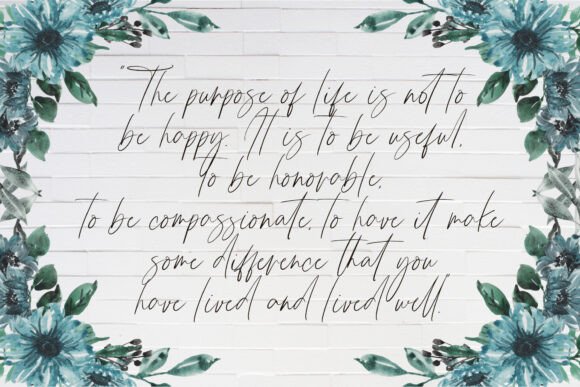 "The purpose of life is not to
be happy. It is to be useful,
to be honorable,
to be compassionate, to have it make
some difference that you
have lived and lived well."